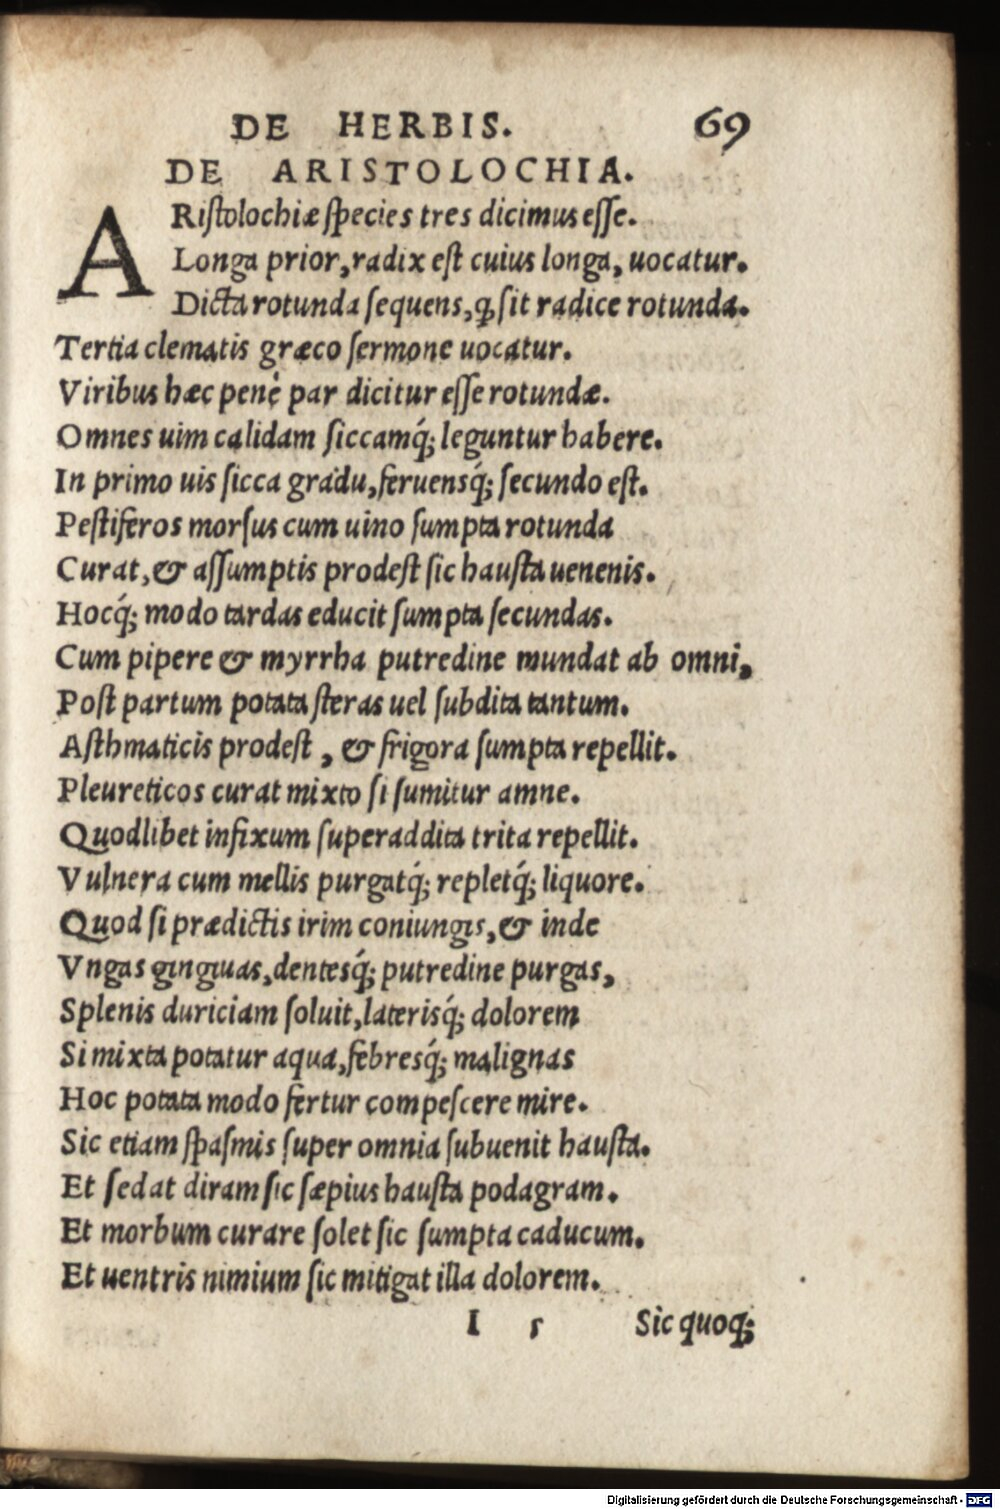 DE HERBIS. 69
DE ARISTOLOCHIA.
ARiſtolochiæ ſpecies tres dicimus eſſe.
Longa prior, radix eſt cuius longa, uocatur.
Dicta rotunda ſequens, ꝙ ſit radice rotunda.
Tertia clematis græco ſermone uocatur.
Viribus hæc penè par dicitur eſſe rotundæ.
Omnes uim calidam ſiccamq́; leguntur habere.
In primo uis ſicca gradu, feruensq́; ſecundo eſt.
Peſtiferos morſus cum uino ſumpta rotunda
Curat, & aſſumptis prodeſt ſic hauſta uenenis.
Hocq́; modo tardas educit ſumpta ſecundas.
Cum pipere & myrrha putredine mundat ab omni,
Poſt partum potata ſteras uel ſubdita tantum.
Aſthmaticis prodeſt, & frigora ſumpta repellit.
Pleureticos curat mixto ſi ſumitur amne.
Quodlibet infixum ſuperaddita trita repellit.
Vulnera cum mellis purgatq́; repletq́; liquore.
Quod ſi prædictis irim coniungis, & inde
Vngas gingiuas, dentesq́; putredine purgas,
Splenis duriciam ſoluit, laterisq́; dolorem
Si mixta potatur aqua, febresq́; malignas
Hoc potata modo fertur compeſcere mire.
Sic etiam ſpaſmis ſuper omnia ſubuenit hauſta.
Et ſedat diram ſic ſæpius hauſta podagram.
Et morbum curare ſolet ſic ſumpta caducum.
Et uentris nimium ſic mitigat illa dolorem.
I 5 Sic quoq;
Digitalisierung gefördert durch die Deutsche Forschungsgemeinschaft - DFG